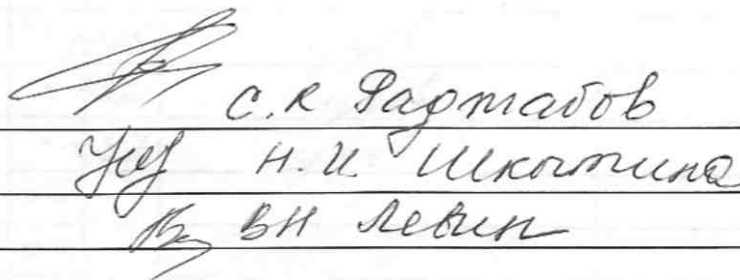 С.К Раджабов
Н.И. Шкотина
ВН Левин